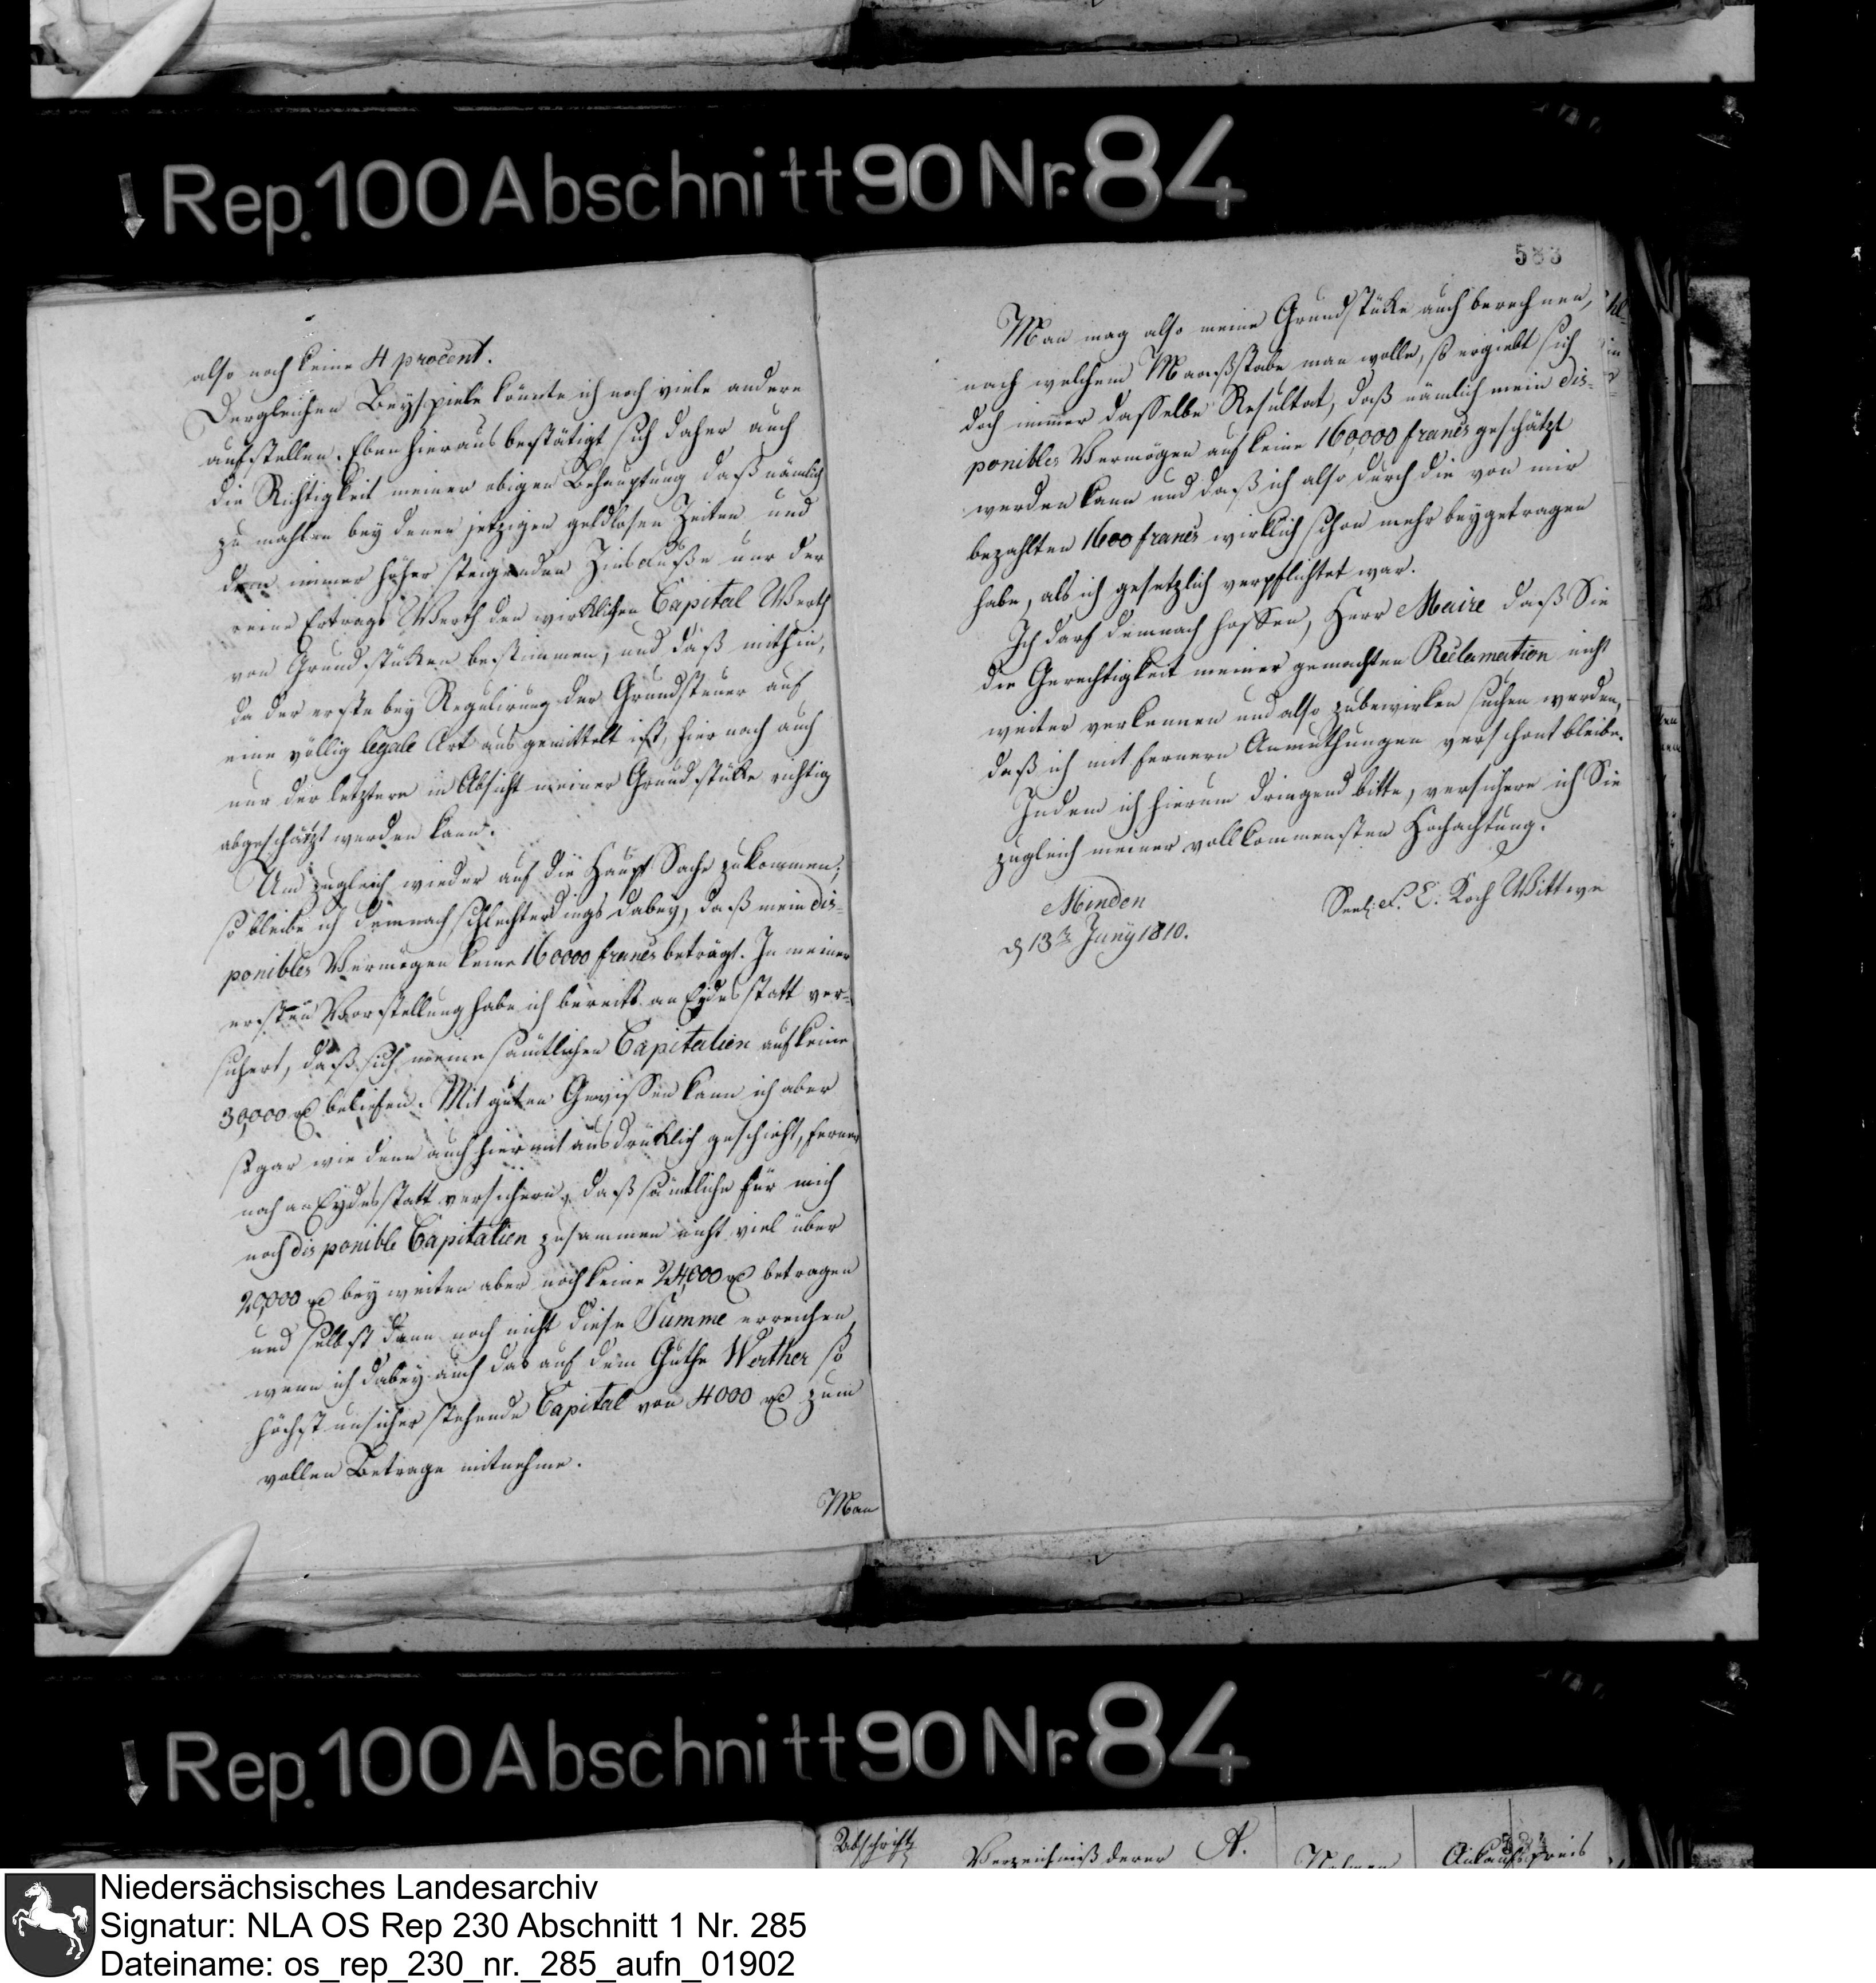 Rep. 100 Abschnitt 90 Nr. 84
also noch keine 4 procent.
Dergleichen Beyspiele könnte ich noch viele andere
aufstellen. Eben hieraus bestätigt sich daher auch
die Richtigkeit meiner obigen Behauptung daß nämlich
zu mahlen bey denen jetzigen geldlosen Zeiten und
dem immer höher steigenden Zinsfuße nur der
reine Ertrags Werth den wirklichen Capital Werth
von Grundstüken bestimmen, und daß mithin,
da der erste bey Regulirung der Grundsteuer auf
eine völlig legale Art ausgemittelt ist, hiernach auch
nur der letztere in Absicht meiner Grundstüke richtig
abgeschätzt werden kann.
Um zugleich wieder auf die Haupt Sache zukommen,
so bleibe ich demnach schlechterdings dabey, daß mein dis-
ponibles Vermögen keine 160000 francs beträgt. In meiner
ersten Vorstellung habe ich bereits an Eydes statt ver-
sichert, daß sich meine sämtlichen Capitalien auf keine
30,000 rℓ beliefen. Mit guten Gewissen kann ich aber
sogar wie denn auch hiermit ausdrüklich geschieht, ferner
noch an Eydesstatt versichern, daß sämtliche für mich
noch disponible Capitalien zusammen nicht viel über
20,000 rℓ bey weiten aber noch keine 24,000 rℓ betragen
und selbst dann noch nicht diese Summe erreichen,
wenn ich dabey auch das auf dem Guthe Werther so
höchst unsicher stehende Capital von 4000 rℓ zum
vollen Betrage mitnehme.
Man
583
Man mag also meine Grundstüke auch berechnen,
nach welchem Maaßstabe man wolle, so ergiebt sich
doch immer dasselbe Resultat, daß nämlich mein dis-
ponibles Vermögen auf keine 160,000 francs geschätzt
werden kann und daß ich also durch die von mir
bezahlten 1600 francs wirklich schon mehr beygetragen
habe, als ich gesetzlich verpflichtet war.
Ich darf demnach hoffen, Herr Maire daß Sie
die Gerechtigkeit meiner gemachten Reclamation nicht
weiter verkennen und also zubewirken suchen werden,
daß ich mit fernern Anmuthungen verschont bleibe.
Indem ich hierum dringend bitte, versichere ich Sie
zugleich meiner vollkommensten Hochachtung.
Minden
d 13ten Juny 1810.
Seel. F. E. Koch Wittwe
Rep. 100 Abschnitt 90 Nr. 84
Abschrift
Verzeichniß derer A.
Nahmen
Ankaufspreis
Niedersächsisches Landesarchiv
Signatur: NLA OS Rep 230 Abschnitt 1 Nr. 285
Dateiname: os_rep_230_nr._285_aufn_01902